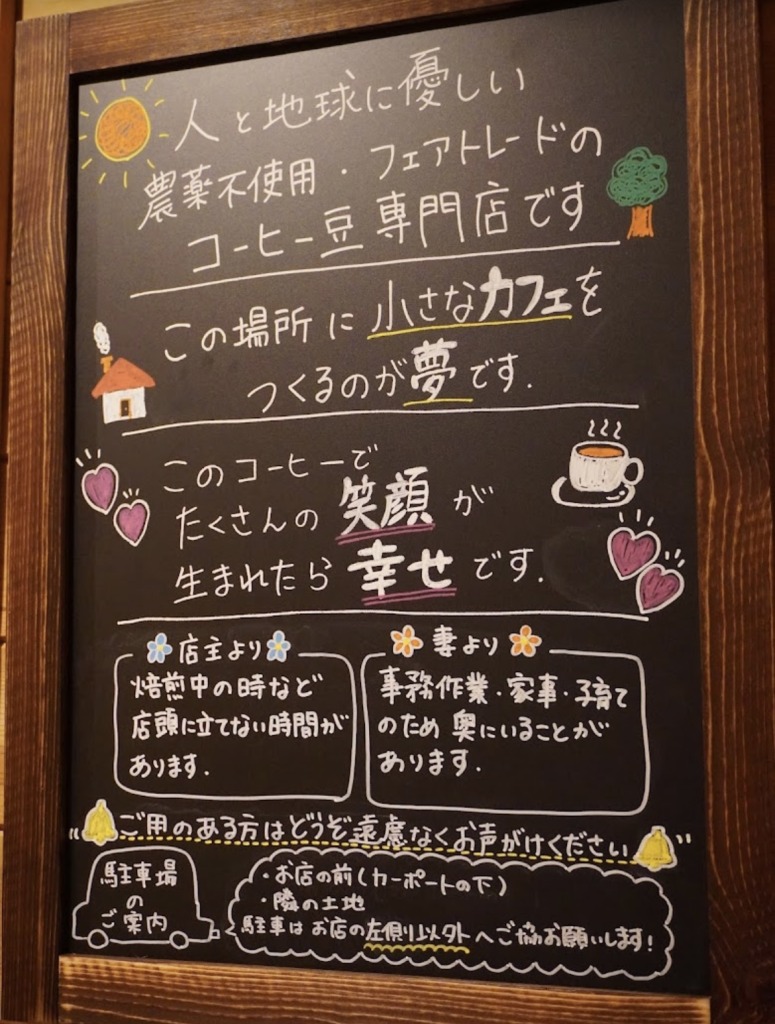 人と地球に優しい
農薬不使用・フェアトレードの
コーヒー豆専門店です
この場所に小さなカフェを
つくるのが夢です.
このコーヒーで
たくさんの笑顔が
生まれたら幸せです.
店主より
焙煎中の時など
店頭に立てない時間が
あります.
妻より
事務作業・家事・子育て
のため奥にいることが
あります.
ご用のある方はどうぞ遠慮なくお声がけください
駐車場
の
ご案内
・お店の前(カーポートの下)
・隣の土地
駐車はお店の左側以外へご協お願いします!